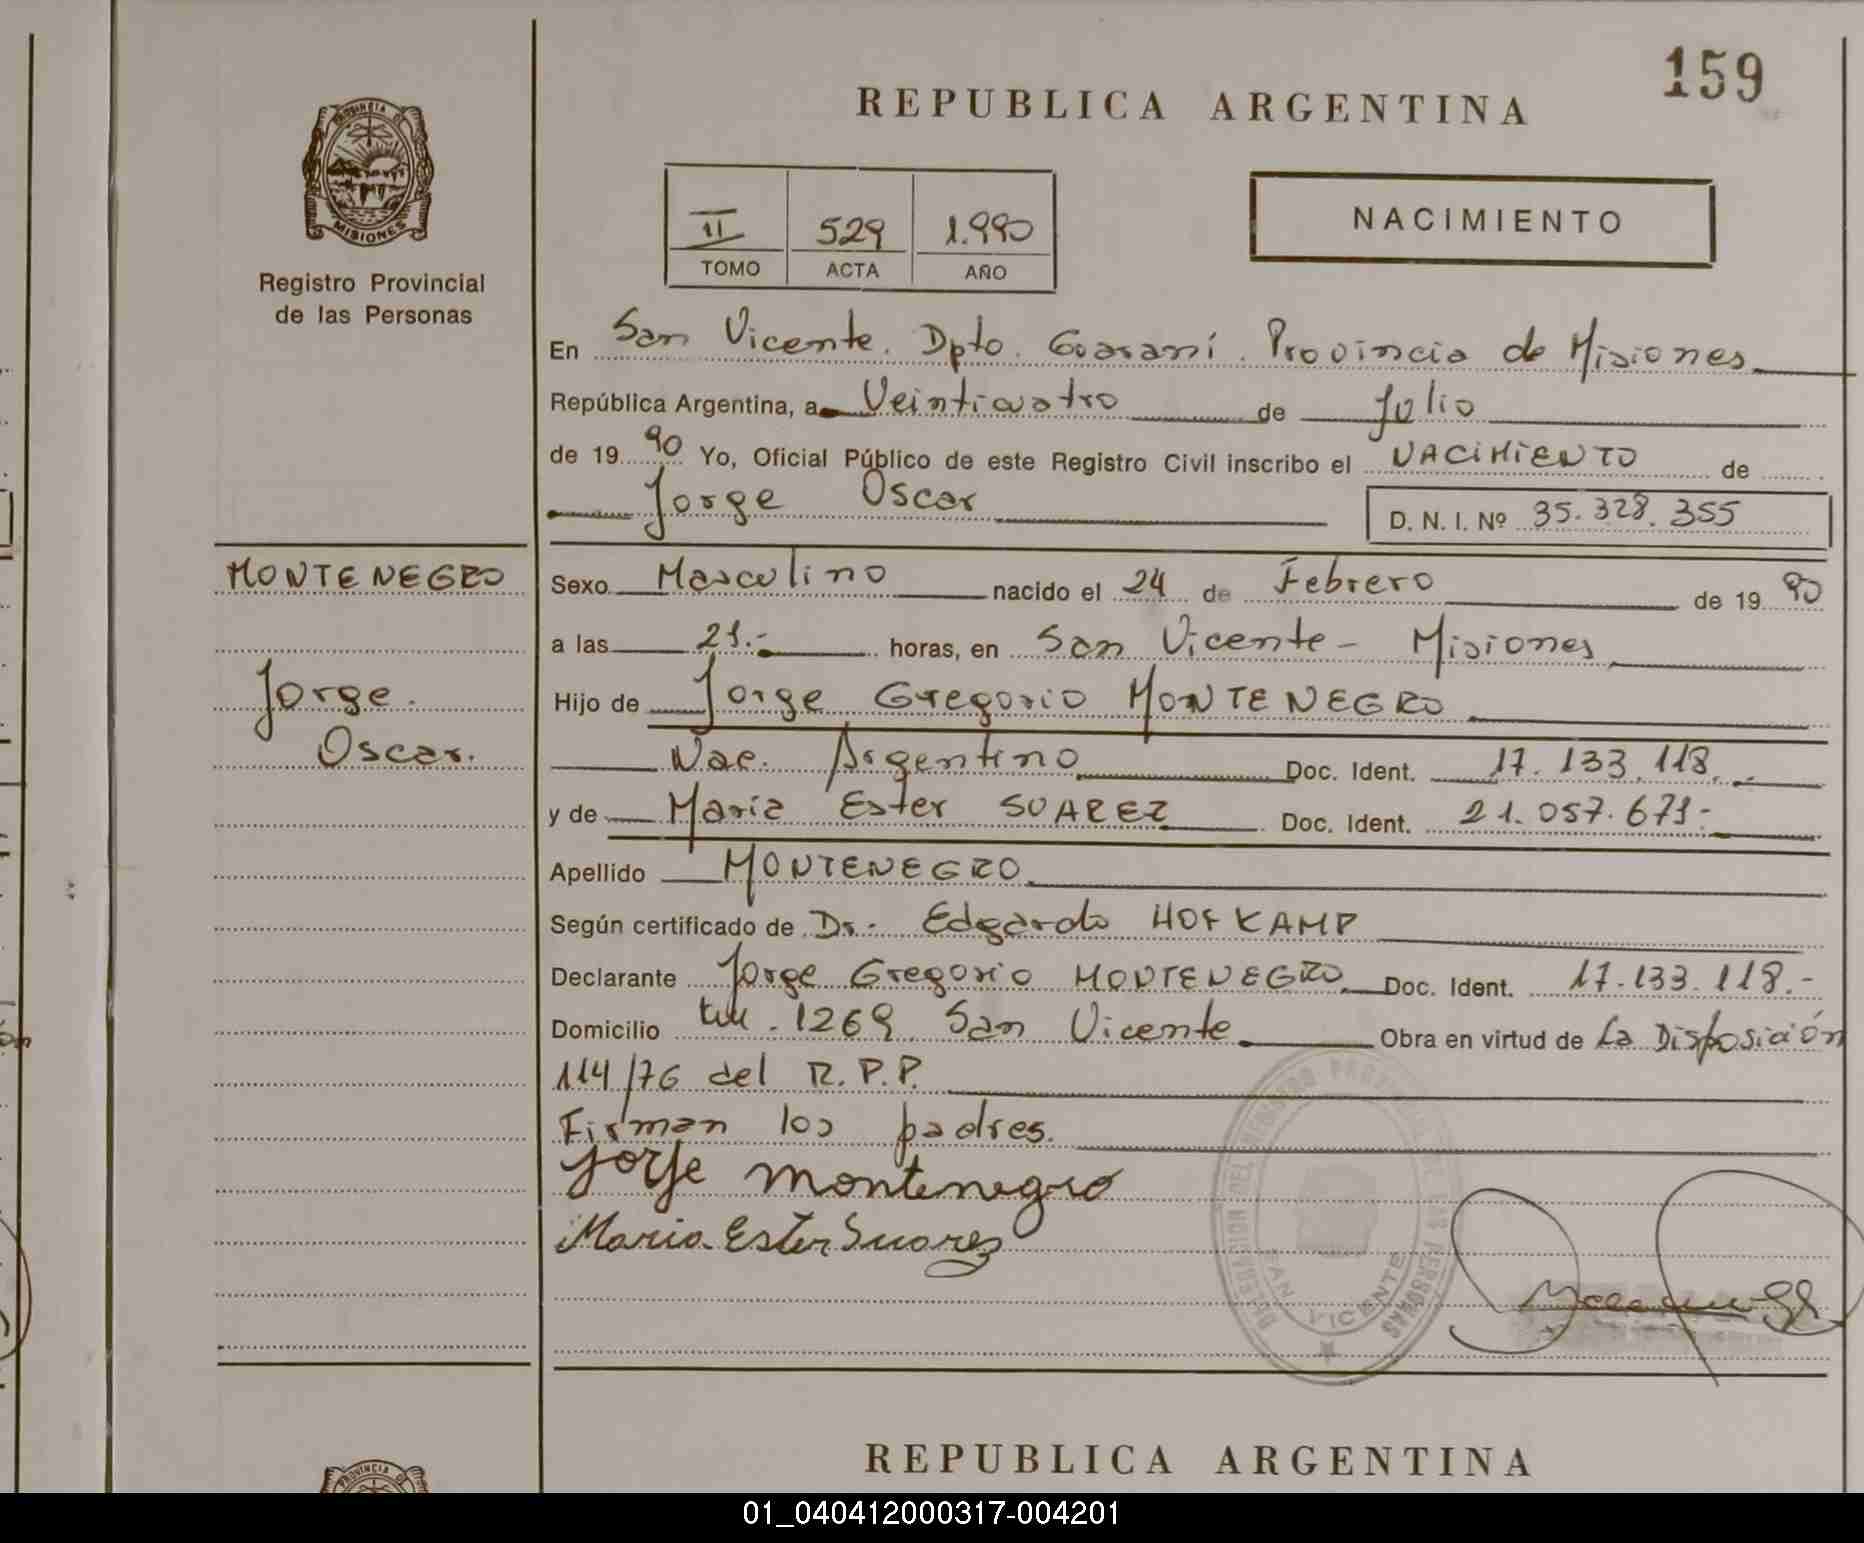 159
REPUBLICA ARGENTINA
PROVINCIA D
MISIONES
Registro Provincial
de las Personas
II 529 1.990
TOMO ACTA AÑO
NACIMIENTO
En San Vicente. Dpto. Guaraní. Provincia de Misiones
República Argentina, a Veinticuatro de Julio
de 19 90 Yo, Oficial Público de este Registro Civil inscribo el NACIMIENTO de
Jorge Oscar D. N. I. Nº 35.328.355
MONTENEGRO
Jorge.
Oscar.
Sexo Masculino nacido el 24 de Febrero de 19 90
a las 21.- horas, en San Vicente - Misiones
Hijo de Jorge Gregorio MONTENEGRO
Nac. Argentino Doc. Ident. 17.133.118.-
y de Maria Ester SUAREZ Doc. Ident. 21.057.671-
Apellido MONTENEGRO
Según certificado de Dr. Edgardo HOFKAMP
Declarante Jorge Gregorio MONTENEGRO Doc. Ident. 17.133.118.-
Domicilio 1269 San Vicente Obra en virtud de La Disposición
114/76 del R.P.P.
Firman los padres.
Jorje montenegro
Maria Ester Suarez
DELEGACION DEL REGISTRO PROVINCIAL DE LAS PERSONAS
SAN VICENTE
REPUBLICA ARGENTINA
PROVINCIA D
01_040412000317-004201